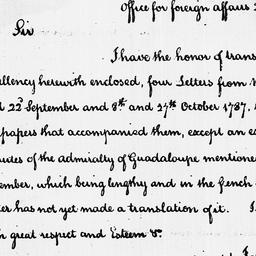 Office for foreign affairs
Sir
I have the honor of trans
ellency herewith enclosed, four Letters from
22d September and 8th and 27th October 1787,
papers that accompanied them, except an
udes of the admiralty of Guadaloupe mentione
ember, which being lengthy and in the french
er has not yet made a translation of it. I
h great respect and Esteem &c.